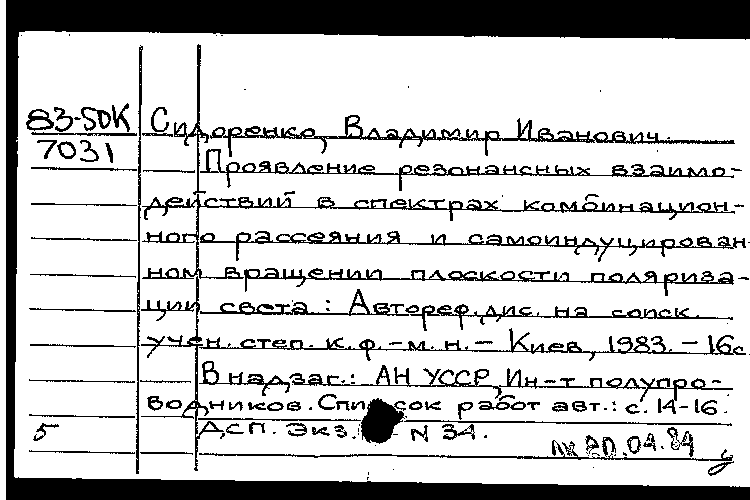 83-5ДК
7031
Сидоренко, Владимир Иванович.
Проявление резонансных взаимо-
действий в спектрах комбинацион-
ного рассеяния и самоиндуцирован-
ном вращении плоскости поляриза-
ции света : Автореф. дис. на соиск.
учен. степ. к. ф.-м. н. - Киев, 1983. - 16с
В надзаг.: АН УССР, Ин-т полупро-
водников. Список работ авт.: с. 14-16.
ДСП. Экз. N 34.
5
20.04.84